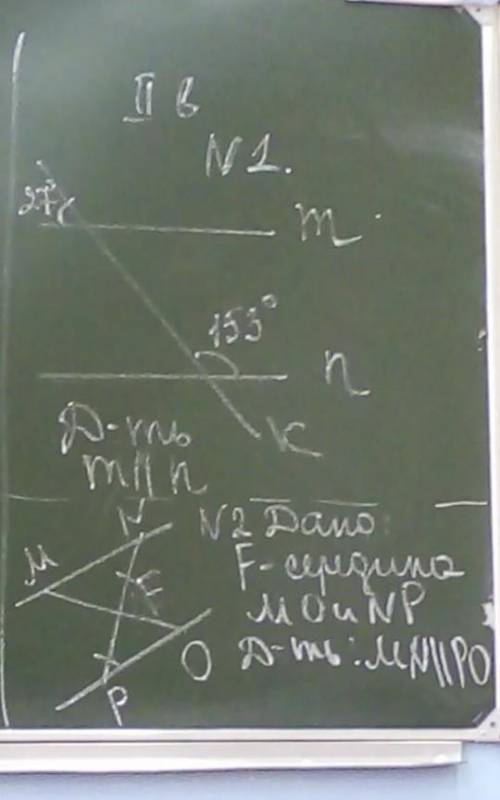 II в
N 1.
27°
m
153°
n
k
Д-ть
m || n
N2 Дано:
F-середина
MO и NP
Д-ть: MN || PO
N
M
F
O
P